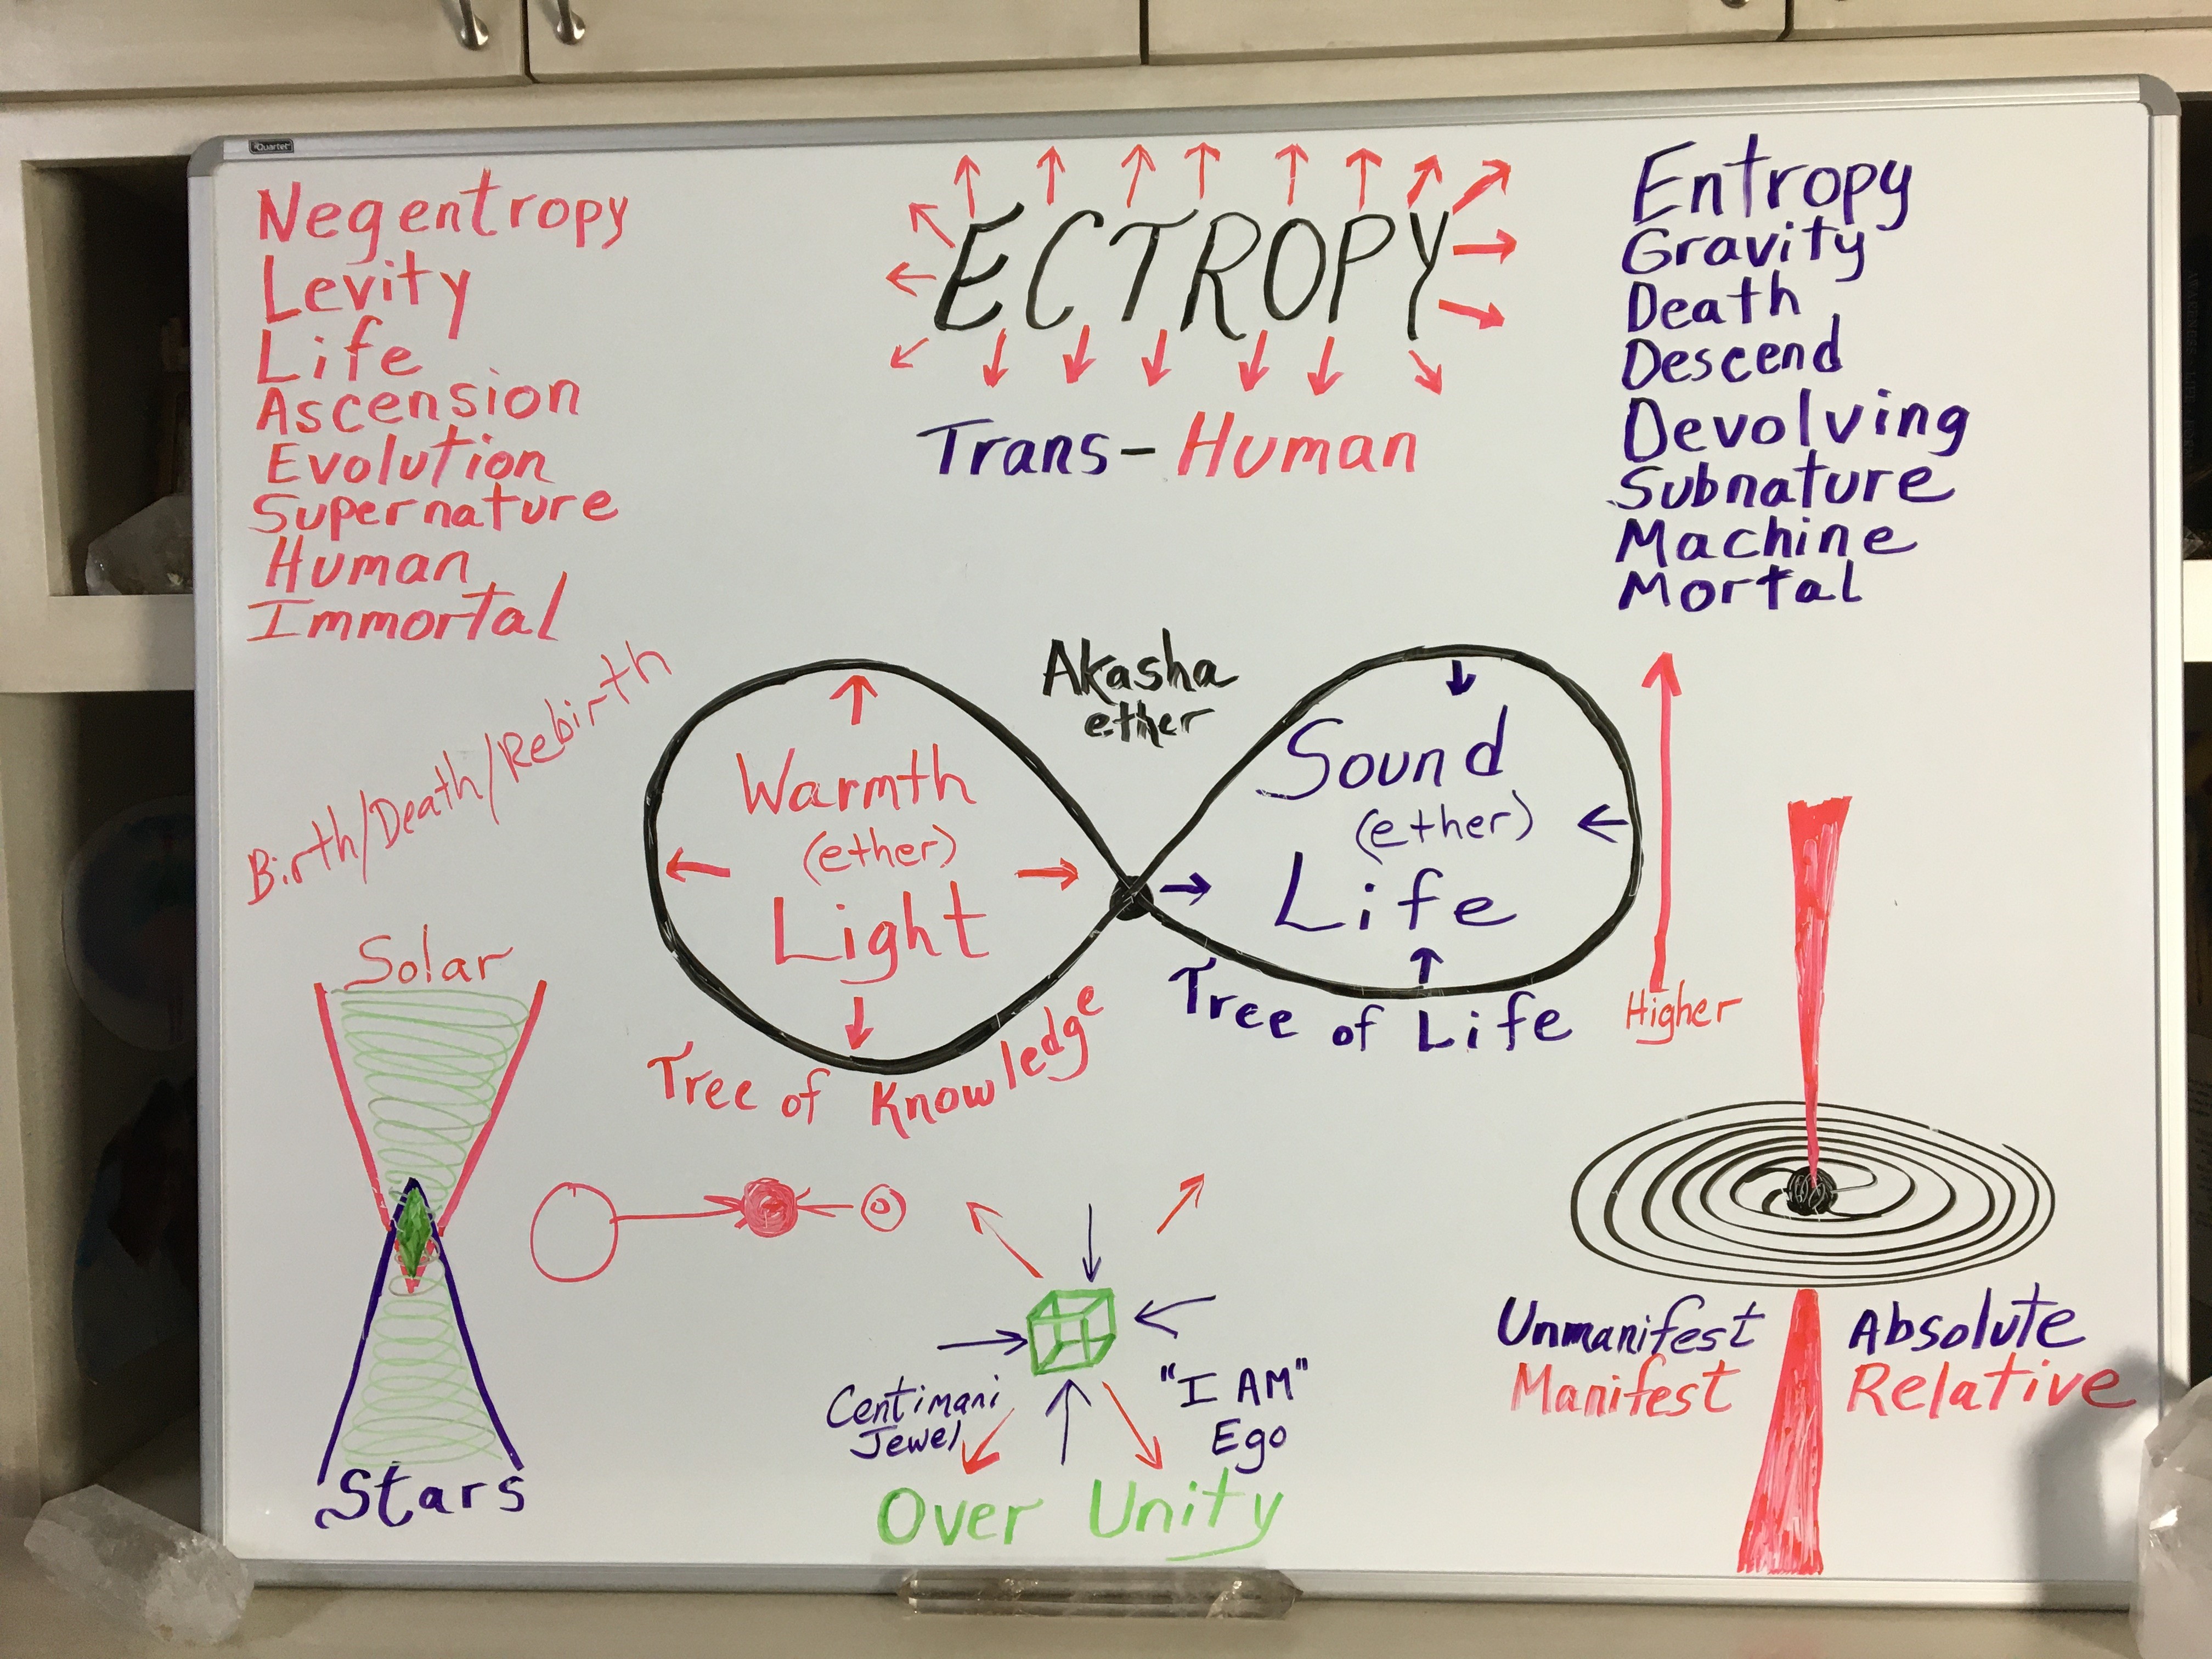 Quartet
Negentropy
Levity
Life
Ascension
Evolution
Supernature
Human
Immortal
ECTROPY
Trans-Human
Entropy
Gravity
Death
Descend
Devolving
Subnature
Machine
Mortal
Birth/Death/Rebirth
Akasha
ether
Warmth
(ether)
Light
Tree of Knowledge
Sound
(ether)
Life
Tree of Life
Higher
Solar
Stars
Centimani
Jewel
"I AM"
Ego
Over Unity
Unmanifest
Manifest
Absolute
Relative